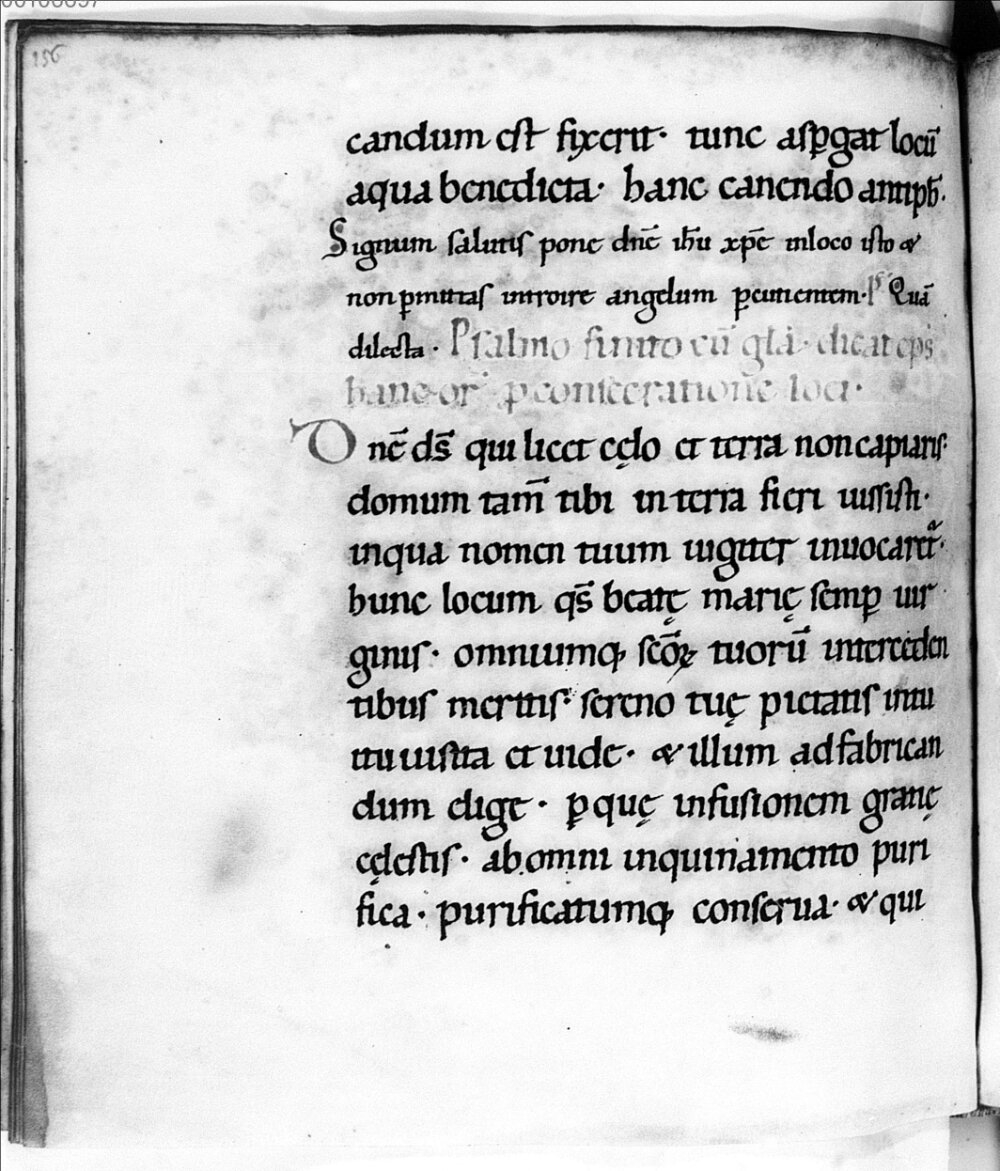 156
candum est fixerit· tunc asꝑgat locū
aqua benedicta· hanc canendo antiph̄.
Signum salutis pone dn̄e ih̄u xp̄e inloco isto &
non ꝑmittas introire angelum ꝑcutientem· Ps̄ Quā
dilecta· Psalmo finito cū gl̄a· dicat ep̄s
hanc or̄ ꝓ consecratione loci·
Dn̄e ds̄ qui licet cęlo et terra non capiaris
domum tam̄ tibi in terra fieri uissisti·
inqua nomen tuum iugiter inuocaret᷑·
hunc locum qs̄ beatę marię semꝑ uir
ginis· omniumq; sc̄oꝝ tuorū interceden
tibus meritis· sereno tuę pietatis intu
itu uisita et uide· & illum adfabrican
dum elige· ꝑ quę infusionem gratię
cęlestis· ab omni inquinamento puri
fica· purificatumq; conserua· & qui